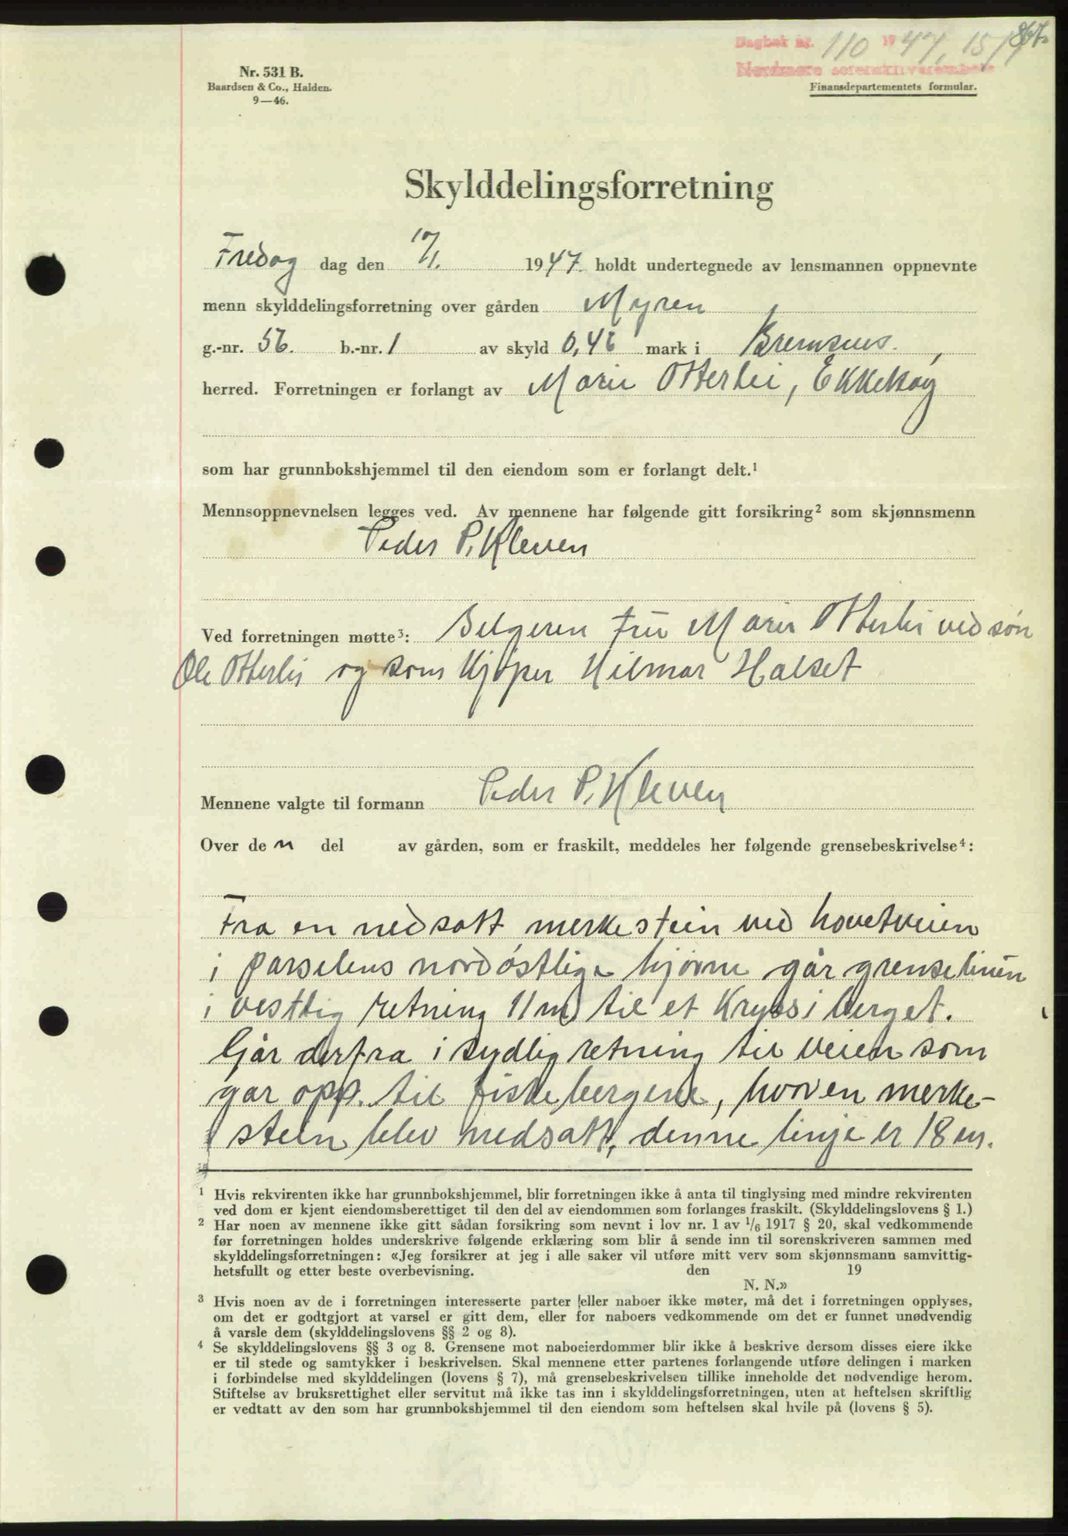 Dagbok nr. 110 1947, 15/1
867.
Nordmøre sorenskriverembete
Nr. 531 B.
Baardsen & Co., Halden.
9—46.
Finansdepartementets formular.
Skylddelingsforretning
Fredag dag den 1947. holdt undertegnede av lensmannen oppnevnte
menn skylddelingsforretning over gården Myren
g.-nr. 56. b.-nr. 1 av skyld 0,46 mark i Bremsnes. ,
herred. Forretningen er forlangt av Marie Otterlei, Ekkilsøy
som har grunnbokshjemmel til den eiendom som er forlangt delt.¹
Mennsoppnevnelsen legges ved. Av mennene har følgende gitt forsikring² som skjønnsmenn
Peder P. Kleven
Ved forretningen møtte³: Selgeren fru Marie Otterlei ved søn
Ole Otterlei og som kjøper Hilmar Halset
Mennene valgte til formann Peder P. Kleven
Over de n del av gården, som er fraskilt, meddeles her følgende grensebeskrivelse⁴:
Fra en nedsatt merkestein ved hovetveien
i parselens nordøstlige hjørne går grenselinien
i vestlig retning 11 m til et kryss i berget.
Går derfra i sydlig retning til veien som
går opp. til fiskebergene, hvor en merke-
stein blev nedsatt, denne linje er 18 m.
¹ Hvis rekvirenten ikke har grunnbokshjemmel, blir forretningen ikke å anta til tinglysing med mindre rekvirenten
ved dom er kjent eiendomsberettiget til den del av eiendommen som forlanges fraskilt. (Skylddelingslovens § 1.)
² Har noen av mennene ikke gitt sådan forsikring som nevnt i lov nr. 1 av 1/6 1917 § 20, skal vedkommende
før forretningen holdes underskrive følgende erklæring som blir å sende inn til sorenskriveren sammen med
skylddelingsforretningen: «Jeg forsikrer at jeg i alle saker vil utføre mitt verv som skjønnsmann samvittig-
hetsfullt og etter beste overbevisning. den 19
N. N.»
³ Hvis noen av de i forretningen interesserte parter eller naboer ikke møter, må det i forretningen opplyses,
om det er godtgjort at varsel er gitt dem, eller for naboers vedkommende om det er funnet unødvendig
å varsle dem (skylddelingslovens §§ 2 og 8).
⁴ Se skylddelingslovens §§ 3 og 8. Grensene mot naboeierdommer blir ikke å beskrive dersom disses eiere ikke
er til stede og samtykker i beskrivelsen. Skal mennene etter partenes forlangende utføre delingen i marken
i forbindelse med skylddelingen (lovens § 7), må grensebeskrivelsen tillike inneholde det nødvendige herom.
Stiftelse av bruksrettighet eller servitut må ikke tas inn i skylddelingsforretningen, uten at heftelsen skriftlig
er vedtatt av den som har grunnbokshjemmel til den eiendom som heftelsen skal hvile på (lovens § 5).